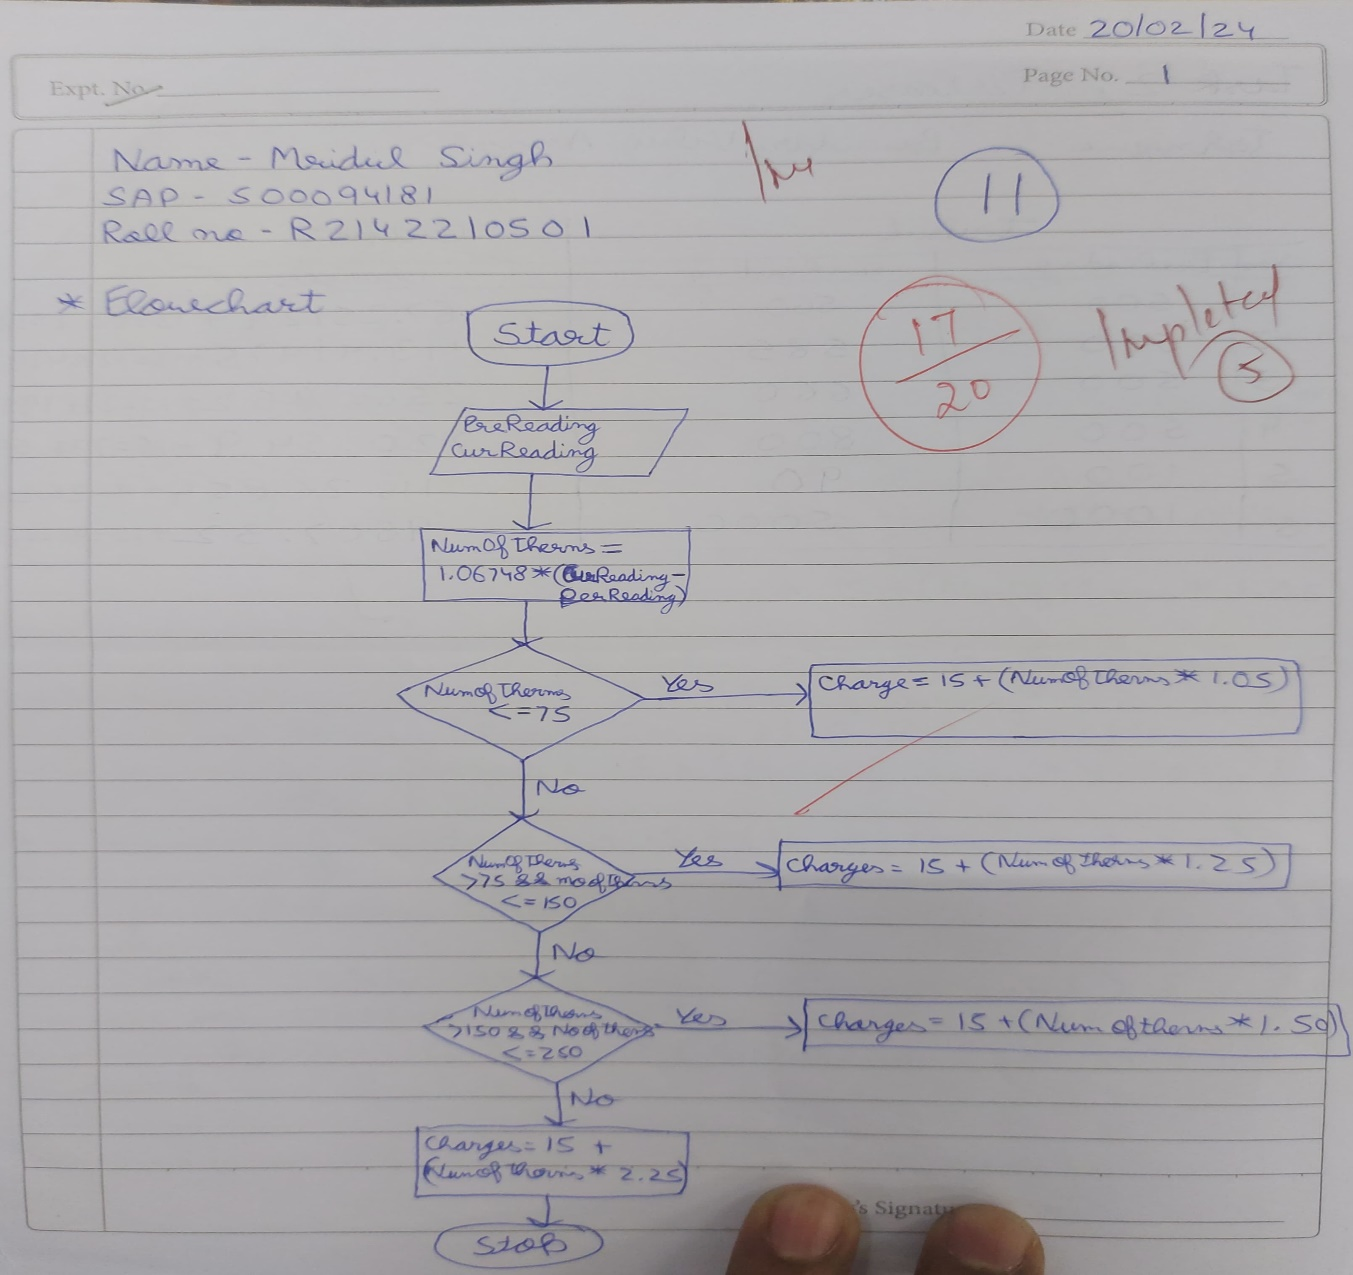 Date 20/02/24
Expt. No.
Page No. 1
Name - Mridul Singh
SAP - 500094181
Roll no - R2142210501
11
* Flowchart
17/20
5
Start
PreReading
CurReading
NumOfTherms =
1.06748 * (CurReading -
PerReading)
NumofTherms
<=75
Yes
Charge = 15 + (NumofTherms * 1.05)
No
NumOfTherms
>75 && noofTherms
<=150
Yes
Charges = 15 + (Numoftherms * 1.25)
No
Numoftherms
>150 && Nooftherms
<=250
Yes
Charges = 15 + (Numoftherms * 1.50)
No
Charges = 15 +
(Numoftherms * 2.25)
's Signatu
Stop